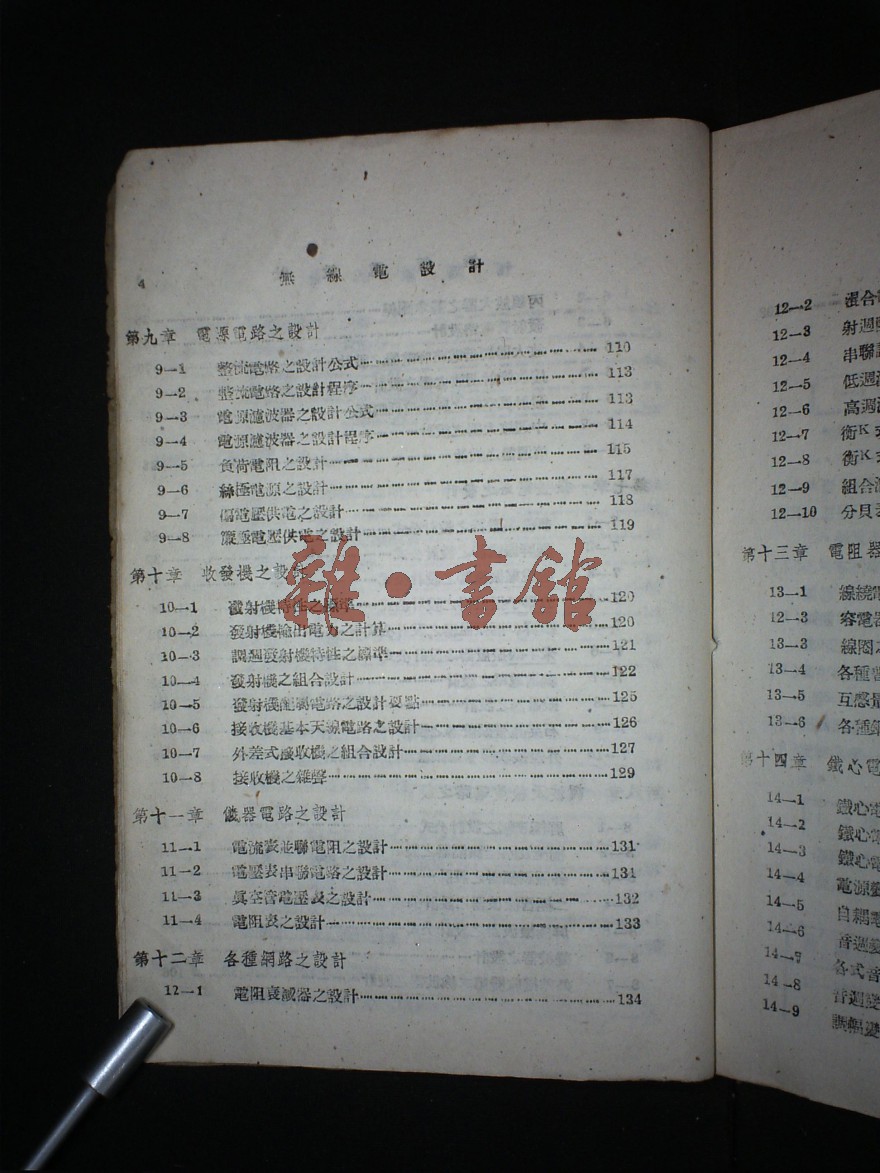 4
無線電設計
第九章 電源電路之設計
9—1 整流電路之設計公式 110
9—2 整流電路之設計程序 113
9—3 電源濾波器之設計公式 113
9—4 電源濾波器之設計程序 114
9—5 負荷電阻之設計 115
9—6 絲極電源之設計 117
9—7 偏電壓供電之設計 118
9—8 簾壓電壓供電之設計 119
第十章 收發機之設計
10—1 發射機特性之標準 120
10—2 發射機輸出電力之計算 120
10—3 調週發射機特性之標準 121
10—4 發射機之組合設計 122
10—5 發射機配弼電路之設計要點 125
10—6 接收機基本天線電路之設計 126
10—7 外差式接收機之組合設計 127
10—8 接收機之雜聲 129
第十一章 儀器電路之設計
11—1 電流表並聯電阻之設計 131
11—2 電壓表串聯電路之設計 131
11—3 眞空管電壓表之設計 132
11—4 電阻表之設計 133
第十二章 各種網路之設計
12—1 電阻衰減器之設計 134
雜·書館
12—2 混合
12—3 射週
12—4 串聯
12—5 低週
12—6 高週
12—7 衡K
12—8 衡K
12—9 組合
12—10 分貝
第十三章 電阻器
13—1 線繞
12—3 容電器
13—3 線圈
13—4 各種
13—5 互感
13—6 各種
第十四章 鐵心電
14—1 鐵心
14—2 鐵心
14—3 鐵心
14—4 電源
14—5 自耦
14—6 音週
14—7 各式音
14—8 音週變
14—9 調幅變